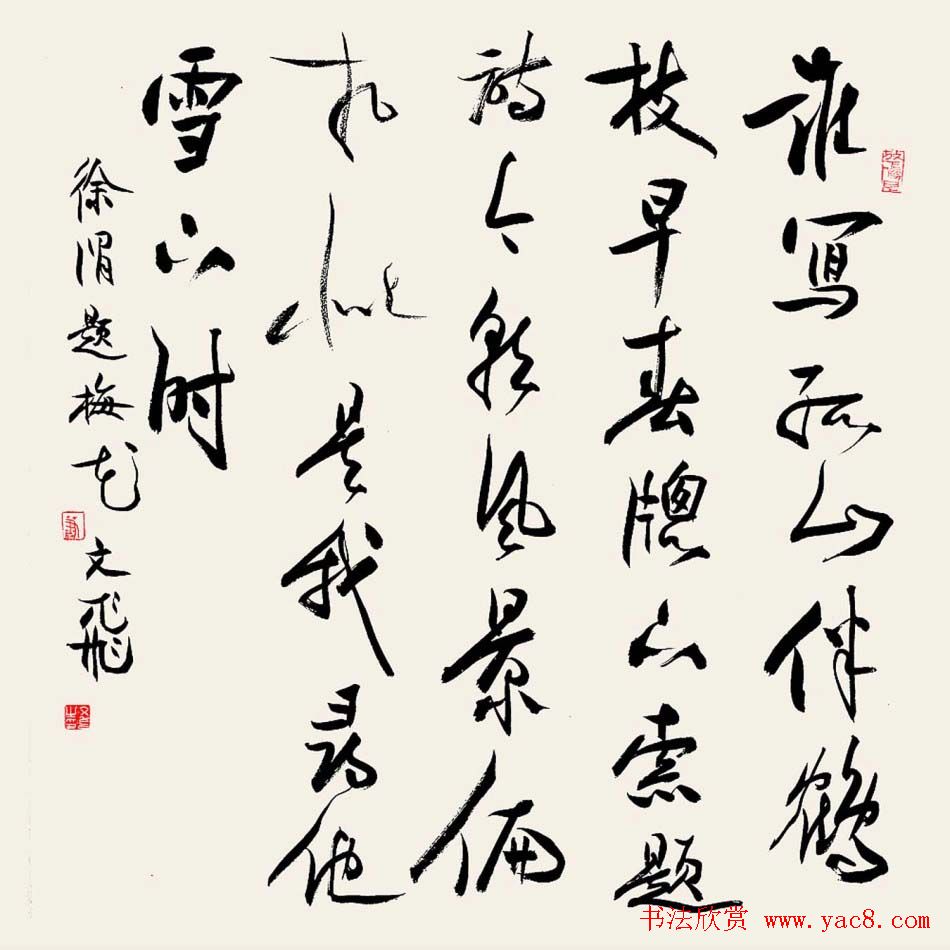 谁写孤山伴鹤
枝早春牕下索题
诗今朝风景偏
相似是我寻他
雪下时
徐渭题梅花 文飛
书法欣赏 www.yac8.com